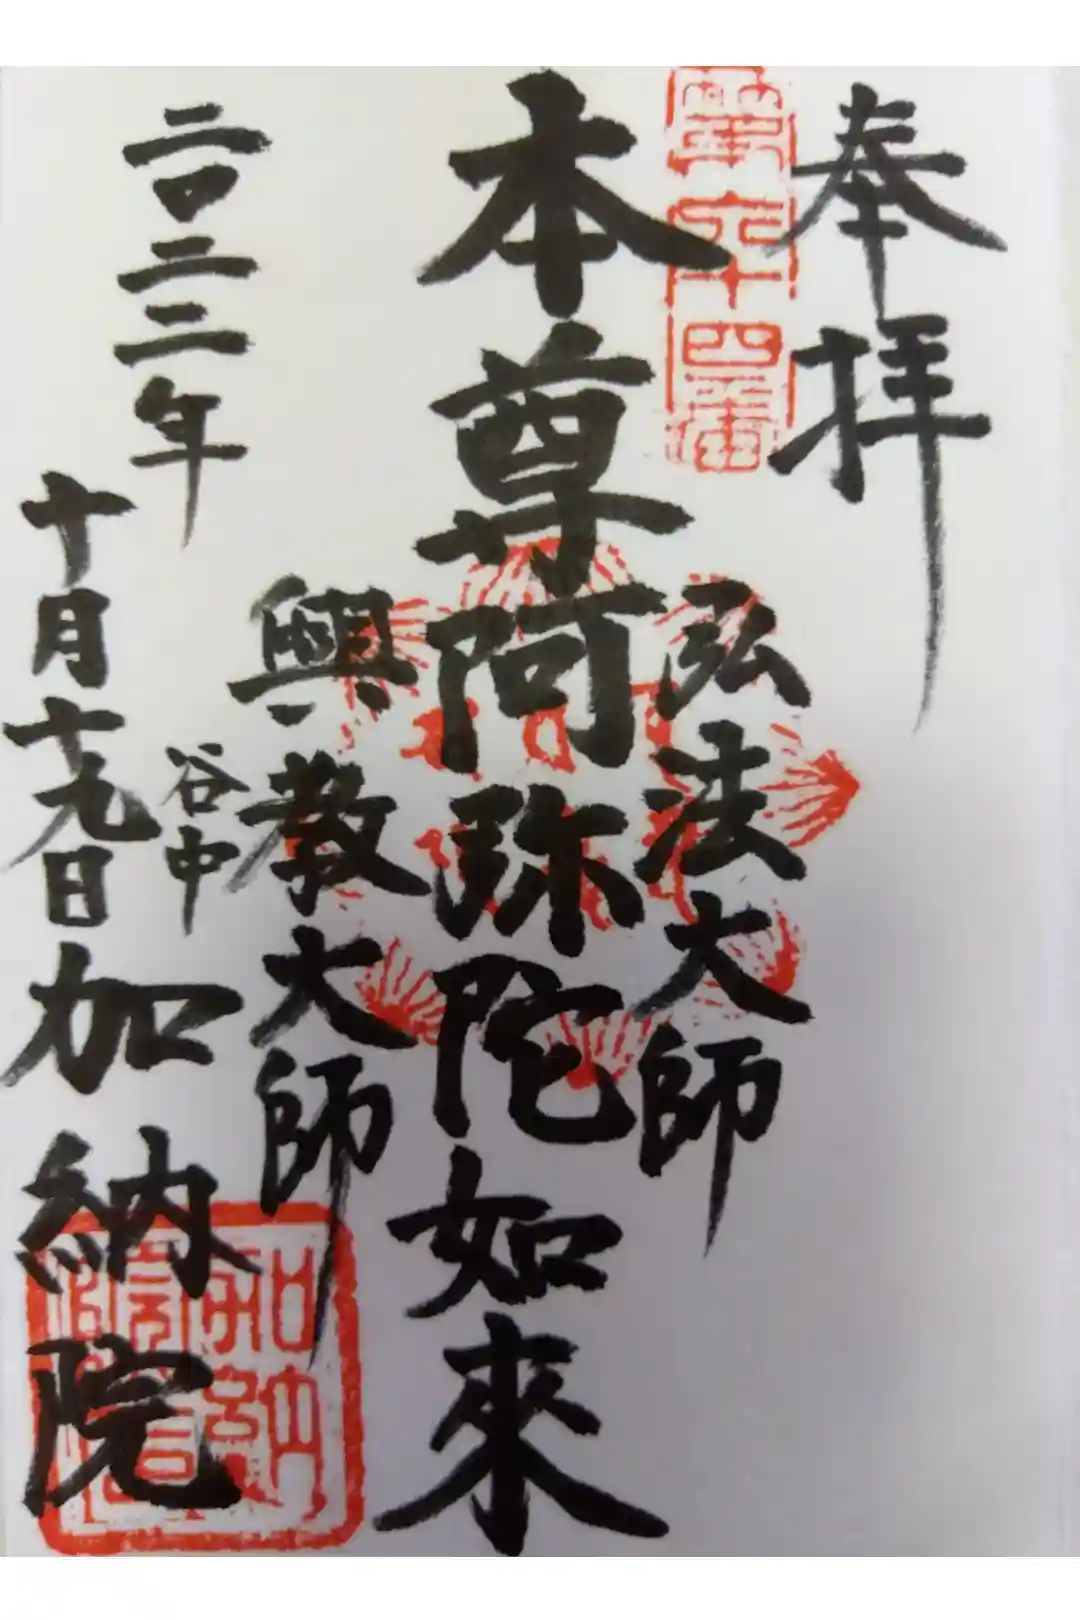 奉拝
第六十四番
弘法大師
本尊阿弥陀如來
興教大師
谷中
二〇二二年
十月十九日
加納院